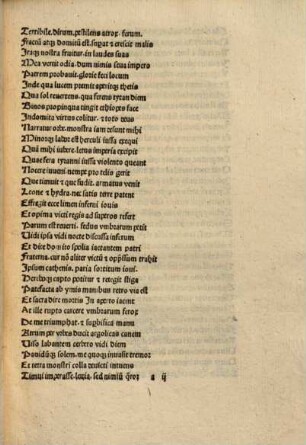 Terribile. dirum. pestilens atrox. ferum.
Fractū atq3 domitū est. supat & crescit malis
Iraq3 nostra fruitur. in laudes suas
Mea vertit odia. dum nimis seua impero
Patrem probaui. glorie feci locum
Inde qua lucem premit aperitq3 thetis
Qua sol reuertens. qua ferens tyran diem
Binos propinqua tingit ethiopas face
Indomita virtus colitur. & toto deus
Narratur orbe. monstra iam desunt mihi
Minorq3 labor est herculi iussa exequi
Quā mihi iubere. letus imperia excipit
Que fera tyranni iussa violento queant
Nocere iuueni nempe pro telis gerit
Que timuit & que fudit. armatus venit
Leone & hydra. nec satis terre patent
Effregit ecce limen inferni iouis
Et opima victi regis ad superos refert
Parum est reuerti. fedus vmbrarum perit
Uidi ipsa vidi nocte discussa inferum
Et dite domito spolia iactantem patri
Fraterna. cur nō aliter victū & oppssum trahit
Ipsum cathenis. paria sortitum ioui.
Herebiq3 capto potitur & retegit stiga
Patefacta ab ymis manibus retro via est
Et sacra dire mortis In aperto iacent
At ille rupto carcere vmbrarum ferox
De me triumphat. & supbifica manu
Atrum per vrbes ducit argolicas canem
Uiso labantem cerbero vidi diem
Pauidūq3 solem. me quoq3 inuasit tremor
Et terna monstri colla deuicti intuens
Timui imperasse. leuia. sed nimiū q̄ror
a ij